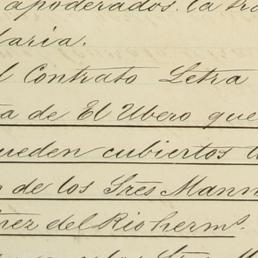 apoderados. la tra
taria.
l Contrato Letra
ta de El Ubero que
ueden cubiertos
de los Sres Mann
nez del Rio herms.